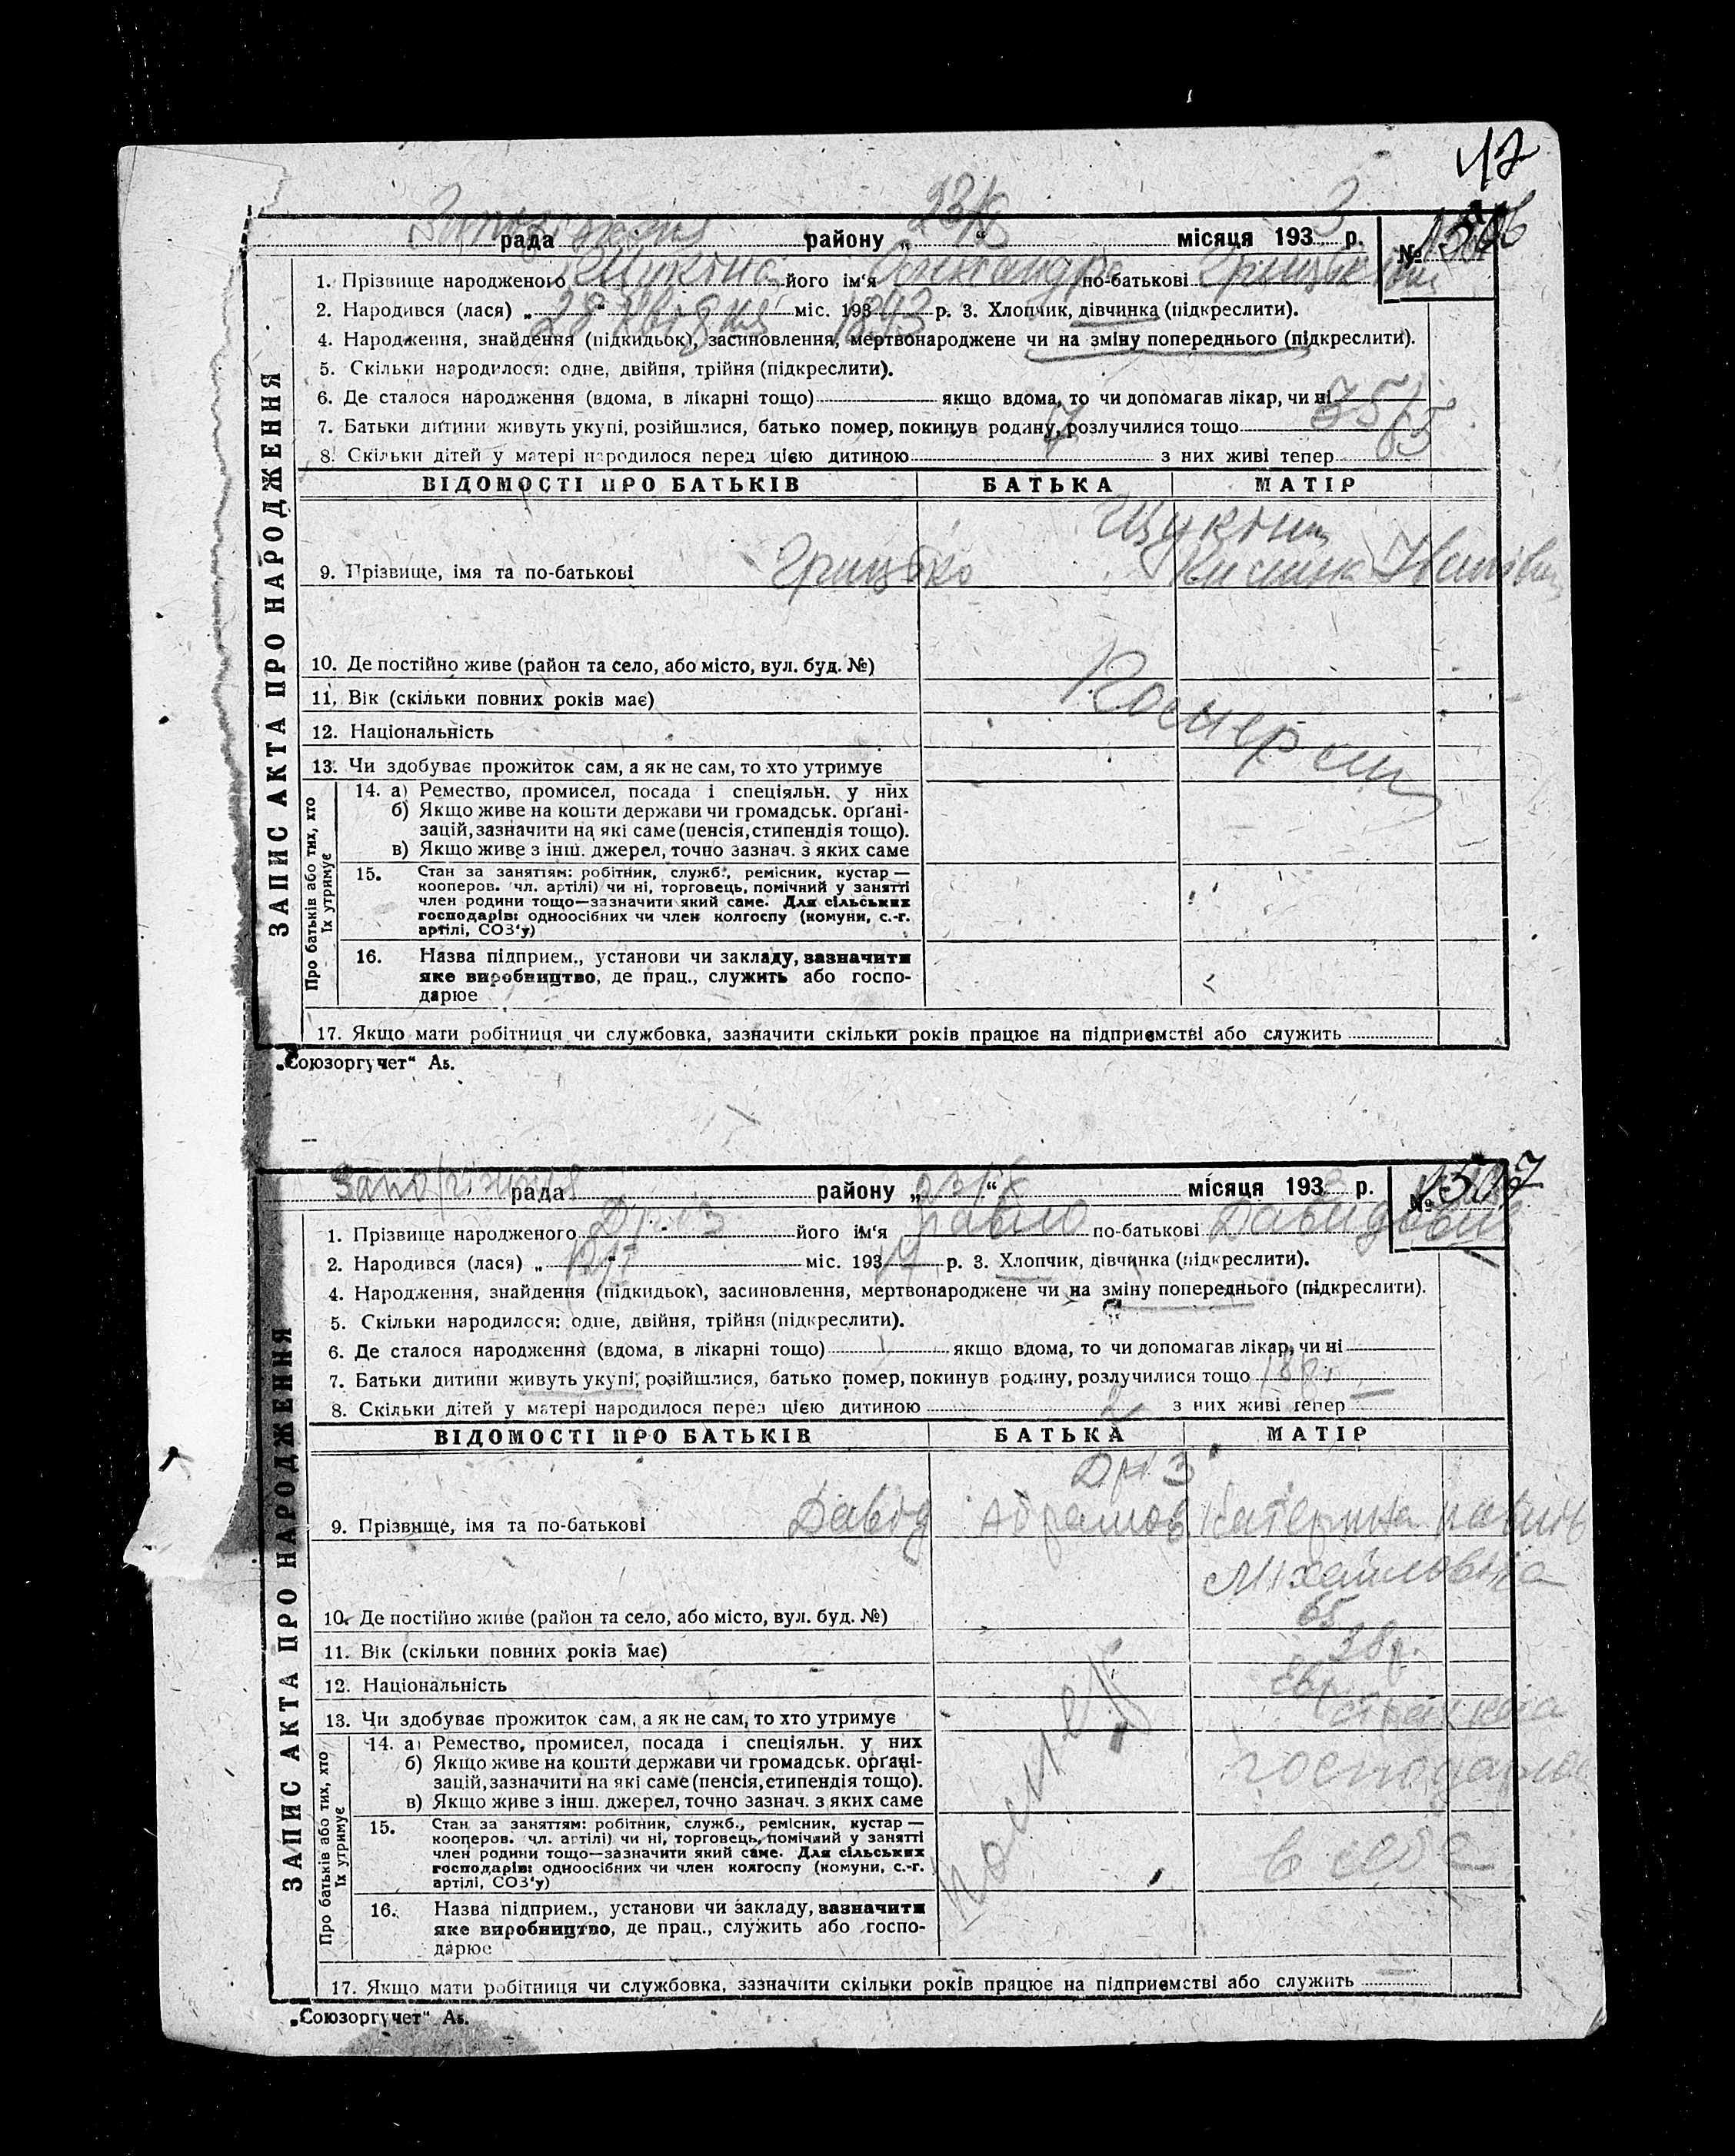 17
23/X 3 1306
рада району „ “ місяця 193 р. №
1. Прізвище народженого Щукіна його ім‘я Олександра по-батькові
2. Народився (лася) „ 28 квітня “ міс. 193 1893 р. 3. Хлопчик, дівчинка (підкреслити).
4. Народження, знайдення (підкидьок), засиновлення, мертвонароджене чи на зміну попереднього (підкреслити).
5. Скільки народилося: одне, двійня, трійня (підкреслити).
6. Де сталося народження (вдома, в лікарні тощо) якщо вдома, то чи допомагав лікар, чи ні
7. Батьки дитини живуть укупі, розійшлися, батько помер, покинув родину, розлучилися тощо
8. Скільки дітей у матері народилося перед цією дитиною 7 з них живі тепер
ЗАПИС АКТА ПРО НАРОДЖЕННЯ
ВІДОМОСТІ ПРО БАТЬКІВ БАТЬКА МАТІР
Щукіни
9. Прізвище, імя та по-батькові Грицько
10. Де постійно живе (район та село, або місто, вул. буд. №)
11. Вік (скільки повних років має)
12. Національність
13. Чи здобуває прожиток сам, а як не сам, то хто утримує
Про батьків або тих, хто їх утримує
14. а) Ремество, промисел, посада і спеціяльн. у них
б) Якщо живе на кошти держави чи громадськ. орґані-
зацій, зазначити на які саме (пенсія, стипендія тощо).
в) Якщо живе з інш. джерел, точно зазнач. з яких саме
15. Стан за заняттям: робітник, служб., ремісник, кустар —
кооперов. чл. артілі) чи ні, торговець, помічний у занятті
член родини тощо—зазначити який саме. Для сільських
господарів: одноосібних чи член колгоспу (комуни, с.-г.
артілі, СОЗ‘у)
16. Назва підприєм., установи чи закладу, зазначити
яке виробництво, де прац., служить або госпо-
дарює
17. Якщо мати робітниця чи службовка, зазначити скільки років працює на підприємстві або служить
„Союзоргучет“ А5.
23/X 3 1307
рада району „ “ місяця 193 р. №
1. Прізвище народженого його ім‘я Павло по-батькові Давидович
2. Народився (лася) „ “ міс. 193 р. 3. Хлопчик, дівчинка (підкреслити).
4. Народження, знайдення (підкидьок), засиновлення, мертвонароджене чи на зміну попереднього (підкреслити).
5. Скільки народилося: одне, двійня, трійня (підкреслити).
6. Де сталося народження (вдома, в лікарні тощо) якщо вдома, то чи допомагав лікар, чи ні
7. Батьки дитини живуть укупі, розійшлися, батько помер, покинув родину, розлучилися тощо 18р. —
8. Скільки дітей у матері народилося перед цією дитиною 2 з них живі тепер —
ЗАПИС АКТА ПРО НАРОДЖЕННЯ
ВІДОМОСТІ ПРО БАТЬКІВ БАТЬКА МАТІР
9. Прізвище, імя та по-батькові Давід Абрамов Катерина
Міхайловна
65
10. Де постійно живе (район та село, або місто, вул. буд. №)
38р.
11. Вік (скільки повних років має)
Євр.
12. Національність
13. Чи здобуває прожиток сам, а як не сам, то хто утримує
помер
Про батьків або тих, хто їх утримує
14. а) Ремество, промисел, посада і спеціяльн. у них
б) Якщо живе на кошти держави чи громадськ. орґані-
зацій, зазначити на які саме (пенсія, стипендія тощо).
в) Якщо живе з інш. джерел, точно зазнач. з яких саме
господарює
15. Стан за заняттям: робітник, служб., ремісник, кустар —
кооперов. чл. артілі) чи ні, торговець, помічний у занятті
член родини тощо—зазначити який саме. Для сільських
господарів: одноосібних чи член колгоспу (комуни, с.-г.
артілі, СОЗ‘у)
в себе
16. Назва підприєм., установи чи закладу, зазначити
яке виробництво, де прац., служить або госпо-
дарює
17. Якщо мати робітниця чи службовка, зазначити скільки років працює на підприємстві або служить —
„Союзоргучет“ А5.